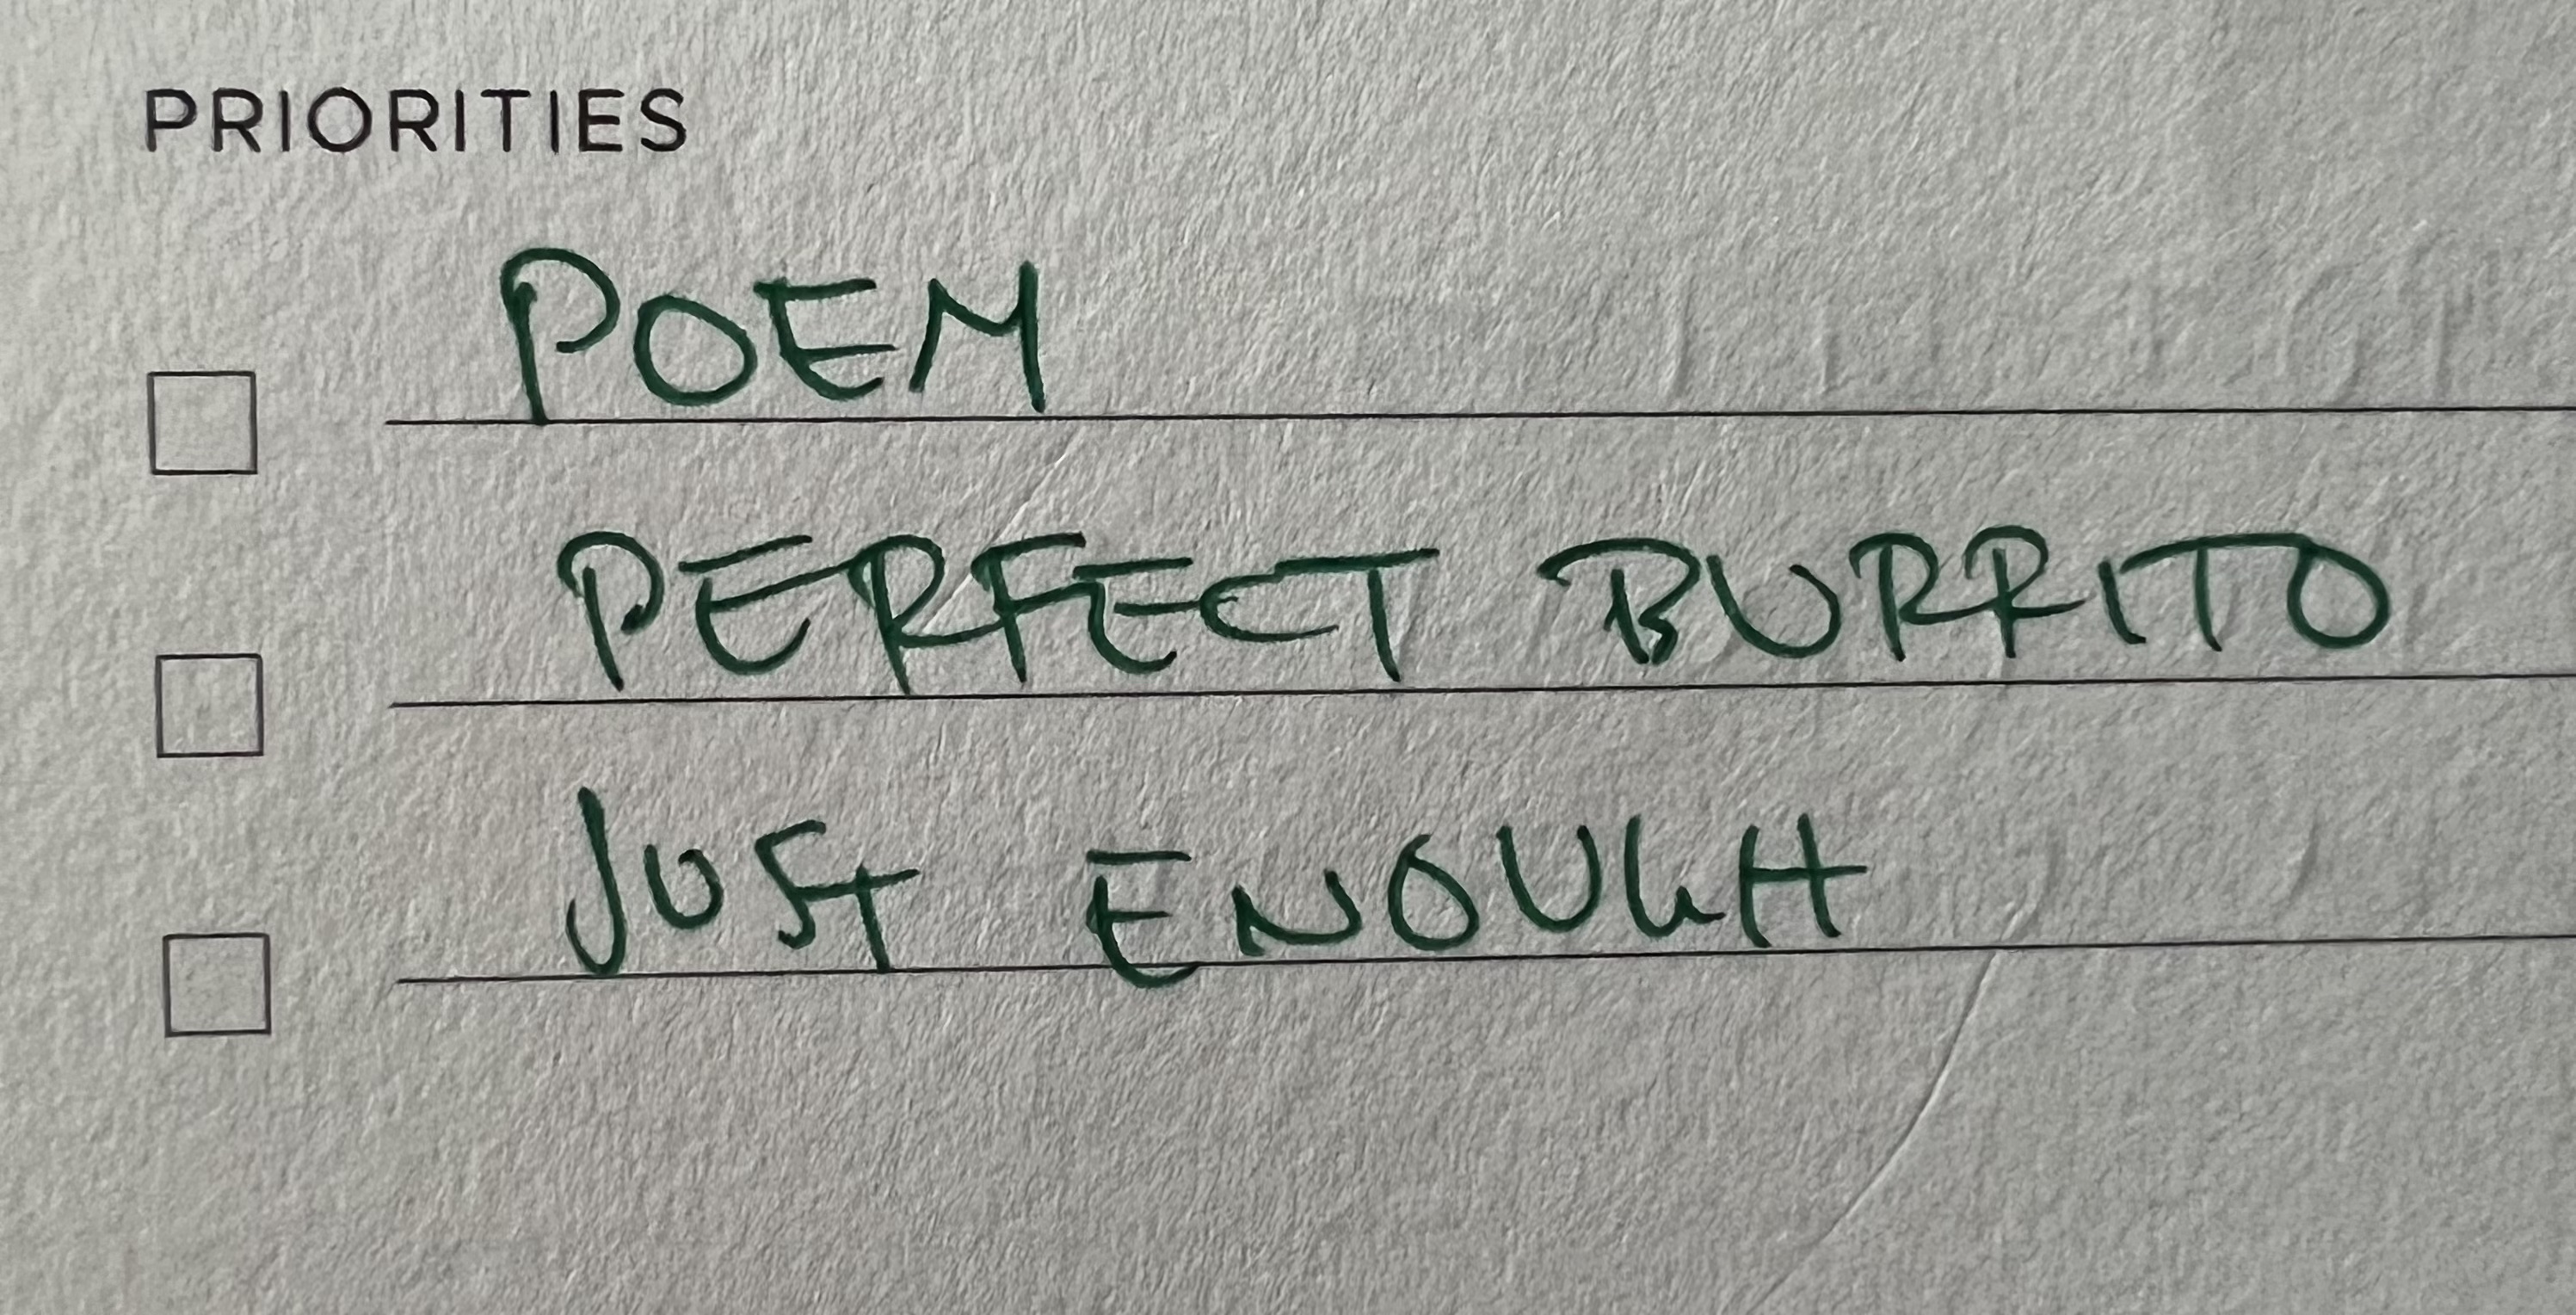 PRIORITIES
POEM
PERFECT BURRITO
JUST ENOUGH